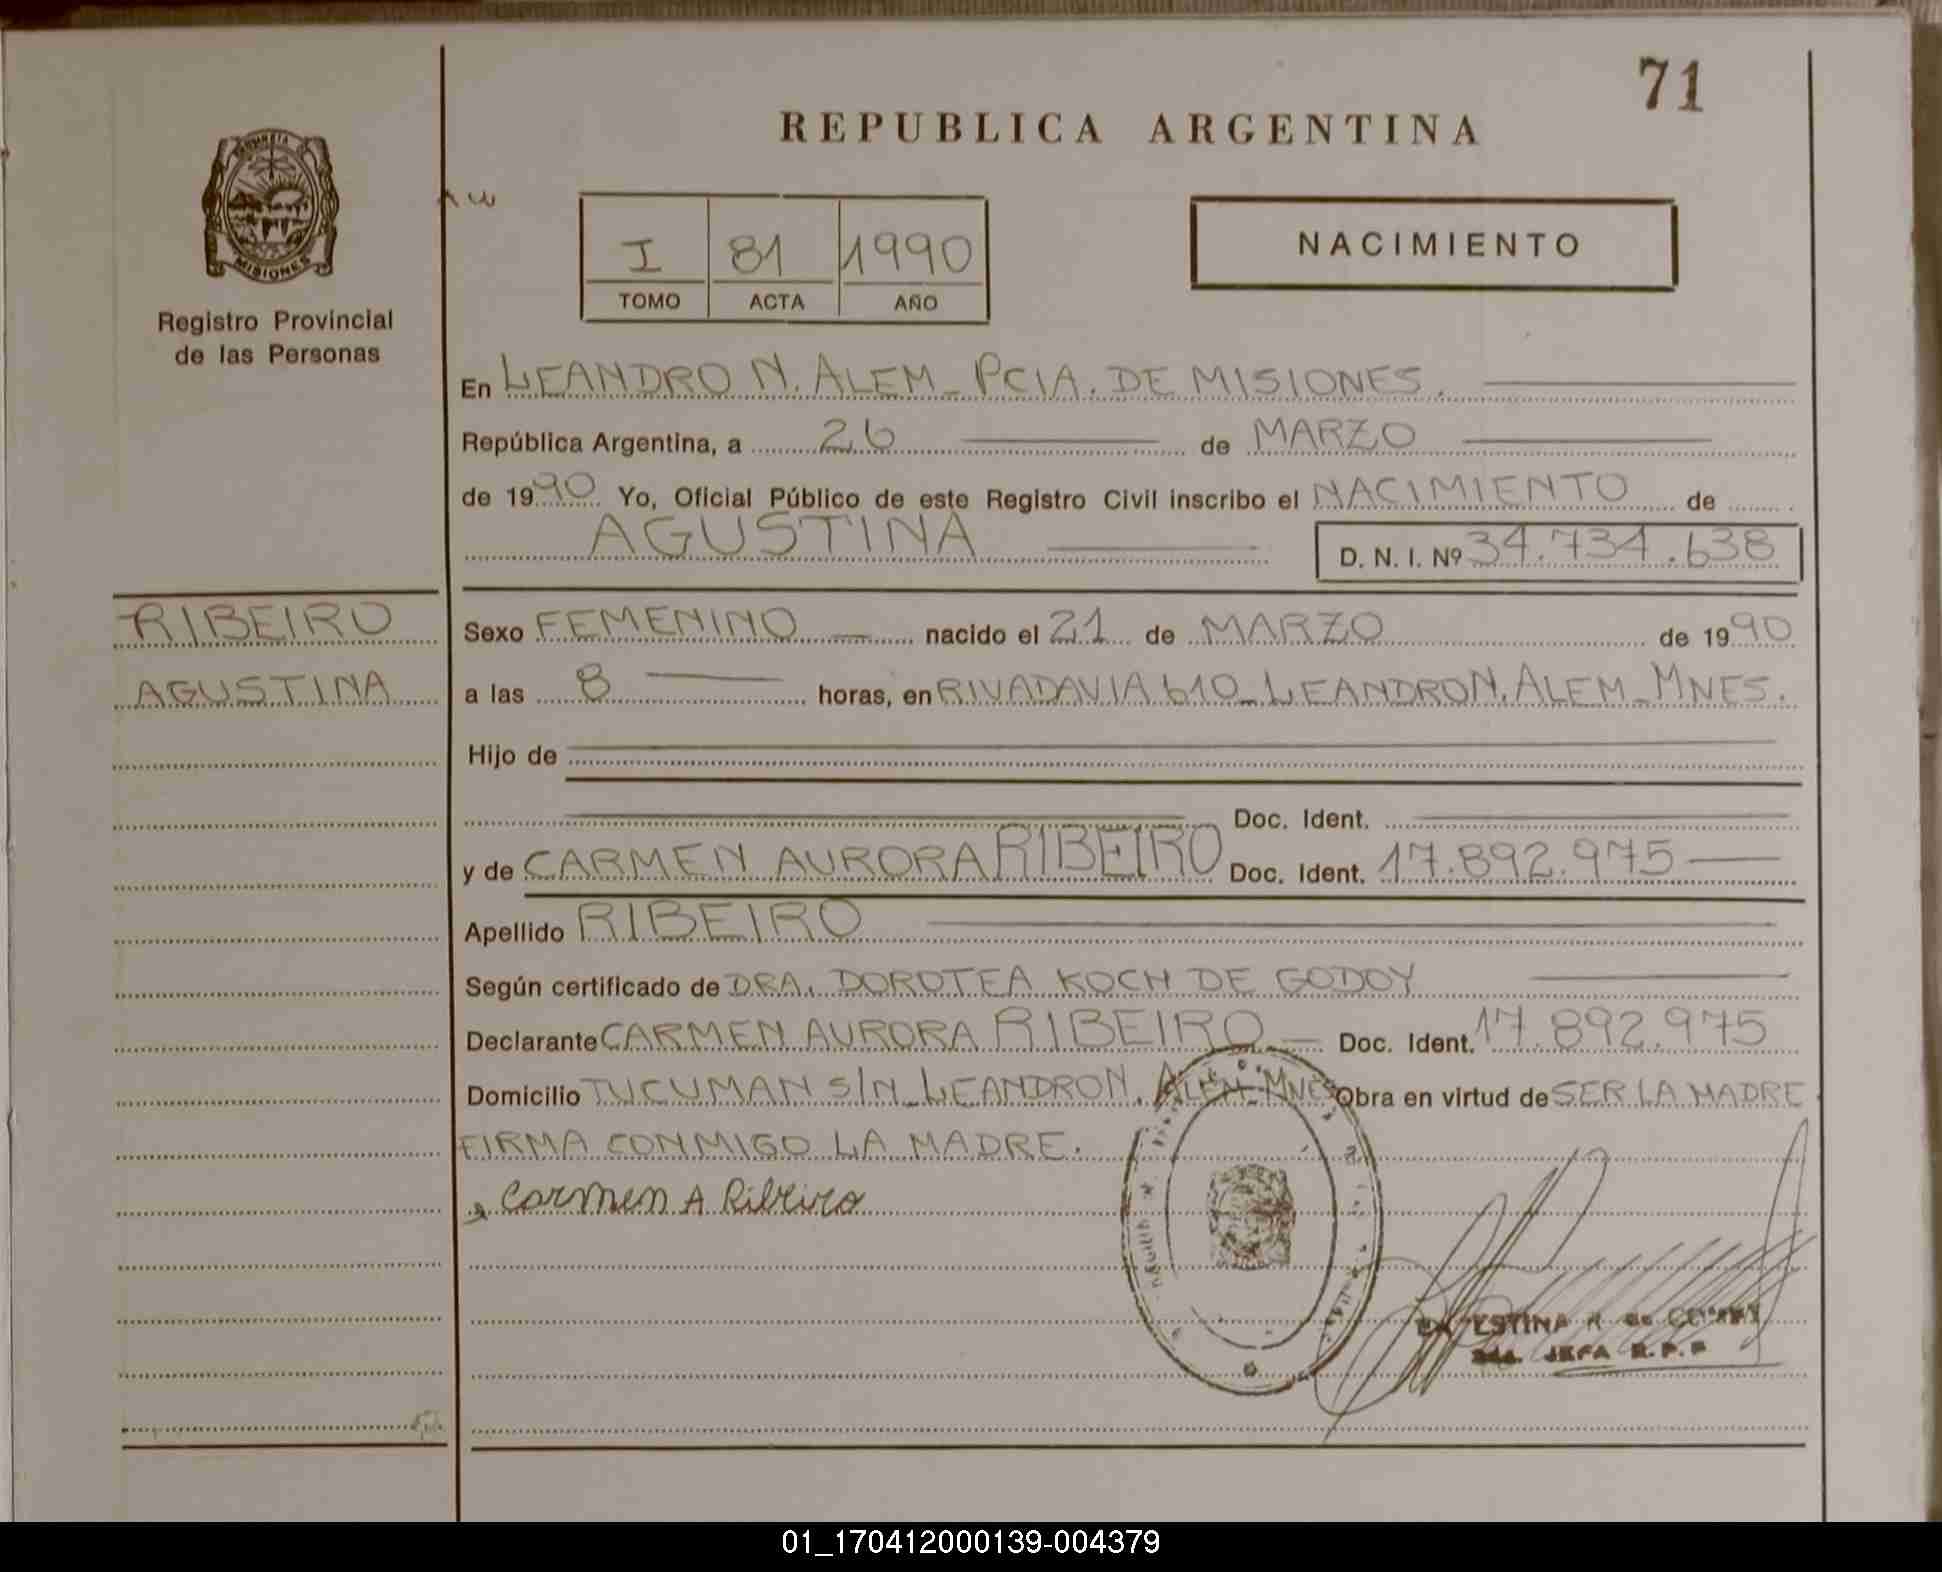 71
REPUBLICA ARGENTINA
MISIONES
Registro Provincial
de las Personas
I 81 1990
TOMO ACTA AÑO
NACIMIENTO
En LEANDRO N. ALEM - PCIA. DE MISIONES.
República Argentina, a 26 de MARZO
de 1990 Yo, Oficial Público de este Registro Civil inscribo el NACIMIENTO de
AGUSTINA D. N. I. Nº 34.734.638
RIBEIRO
AGUSTINA
Sexo FEMENINO nacido el 21 de MARZO de 1990
a las 8 horas, en RIVADAVIA 610 - LEANDRO N. ALEM - MNES.
Hijo de
Doc. Ident.
y de CARMEN AURORA RIBEIRO Doc. Ident. 17.892.975
Apellido RIBEIRO
Según certificado de DRA. DOROTEA KOCH DE GODOY
Declarante CARMEN AURORA RIBEIRO Doc. Ident. 17.892.975
Domicilio TUCUMAN S/N - LEANDRO N. ALEM - MNES Obra en virtud de SER LA MADRE
FIRMA CONMIGO LA MADRE.
Carmen A Ribeiro
JEFA R.P.P
01_170412000139-004379